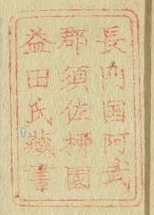 長門国阿武
郡須佐邨園
益田氏蔵書